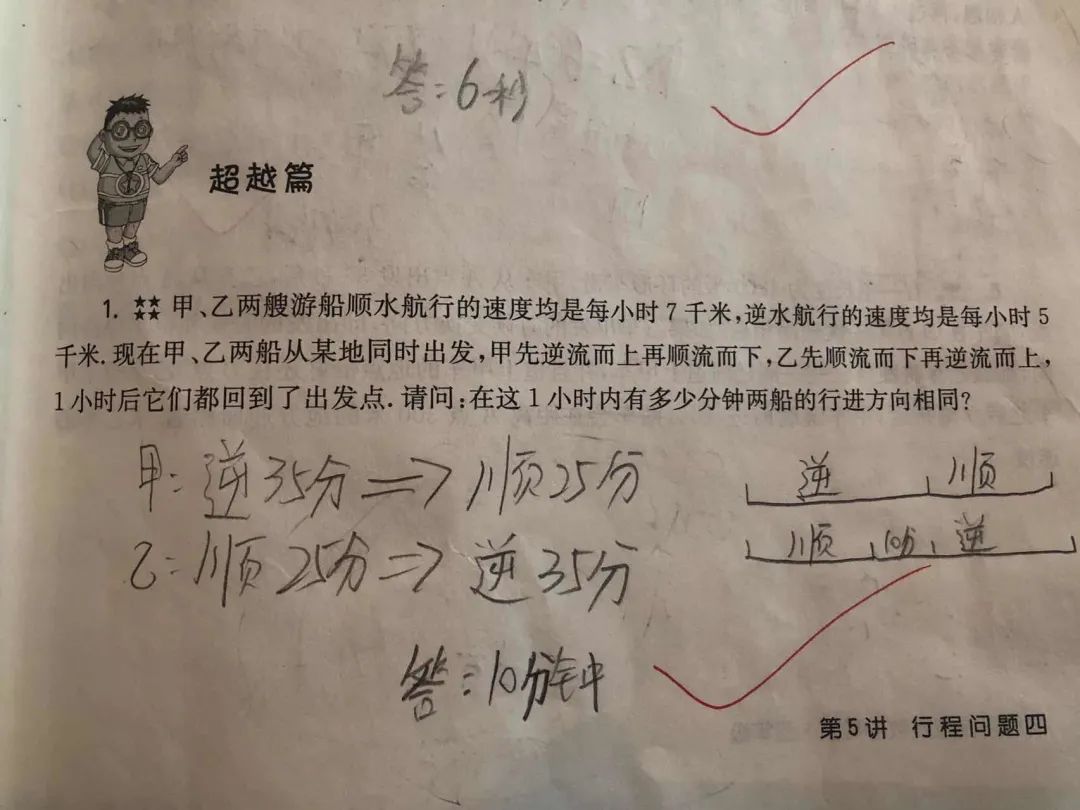 答:6秒
超越篇
1. ★★★★ 甲、乙两艘游船顺水航行的速度均是每小时7千米,逆水航行的速度均是每小时5
千米.现在甲、乙两船从某地同时出发,甲先逆流而上再顺流而下,乙先顺流而下再逆流而上,
1小时后它们都回到了出发点.请问:在这1小时内有多少分钟两船的行进方向相同?
甲:逆35分⇒顺25分
逆 顺
乙:顺25分⇒逆35分
顺 10分 逆
答:10分钟
第5讲 行程问题四